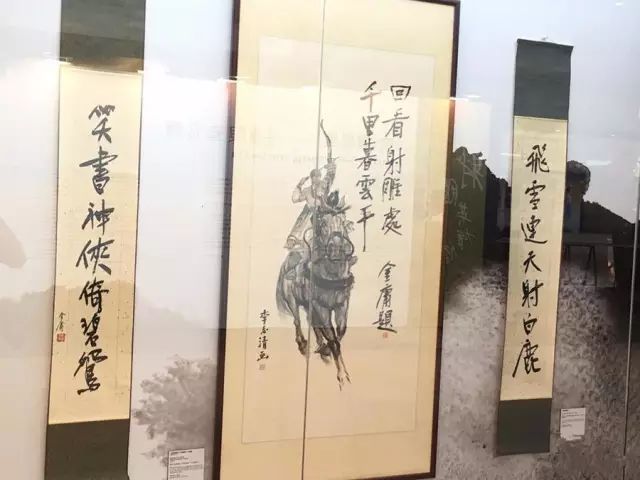 飛雪連天射白鹿
回看射雕處
千里暮雲平
金庸題
李志清画
笑書神俠倚碧鴛
金庸